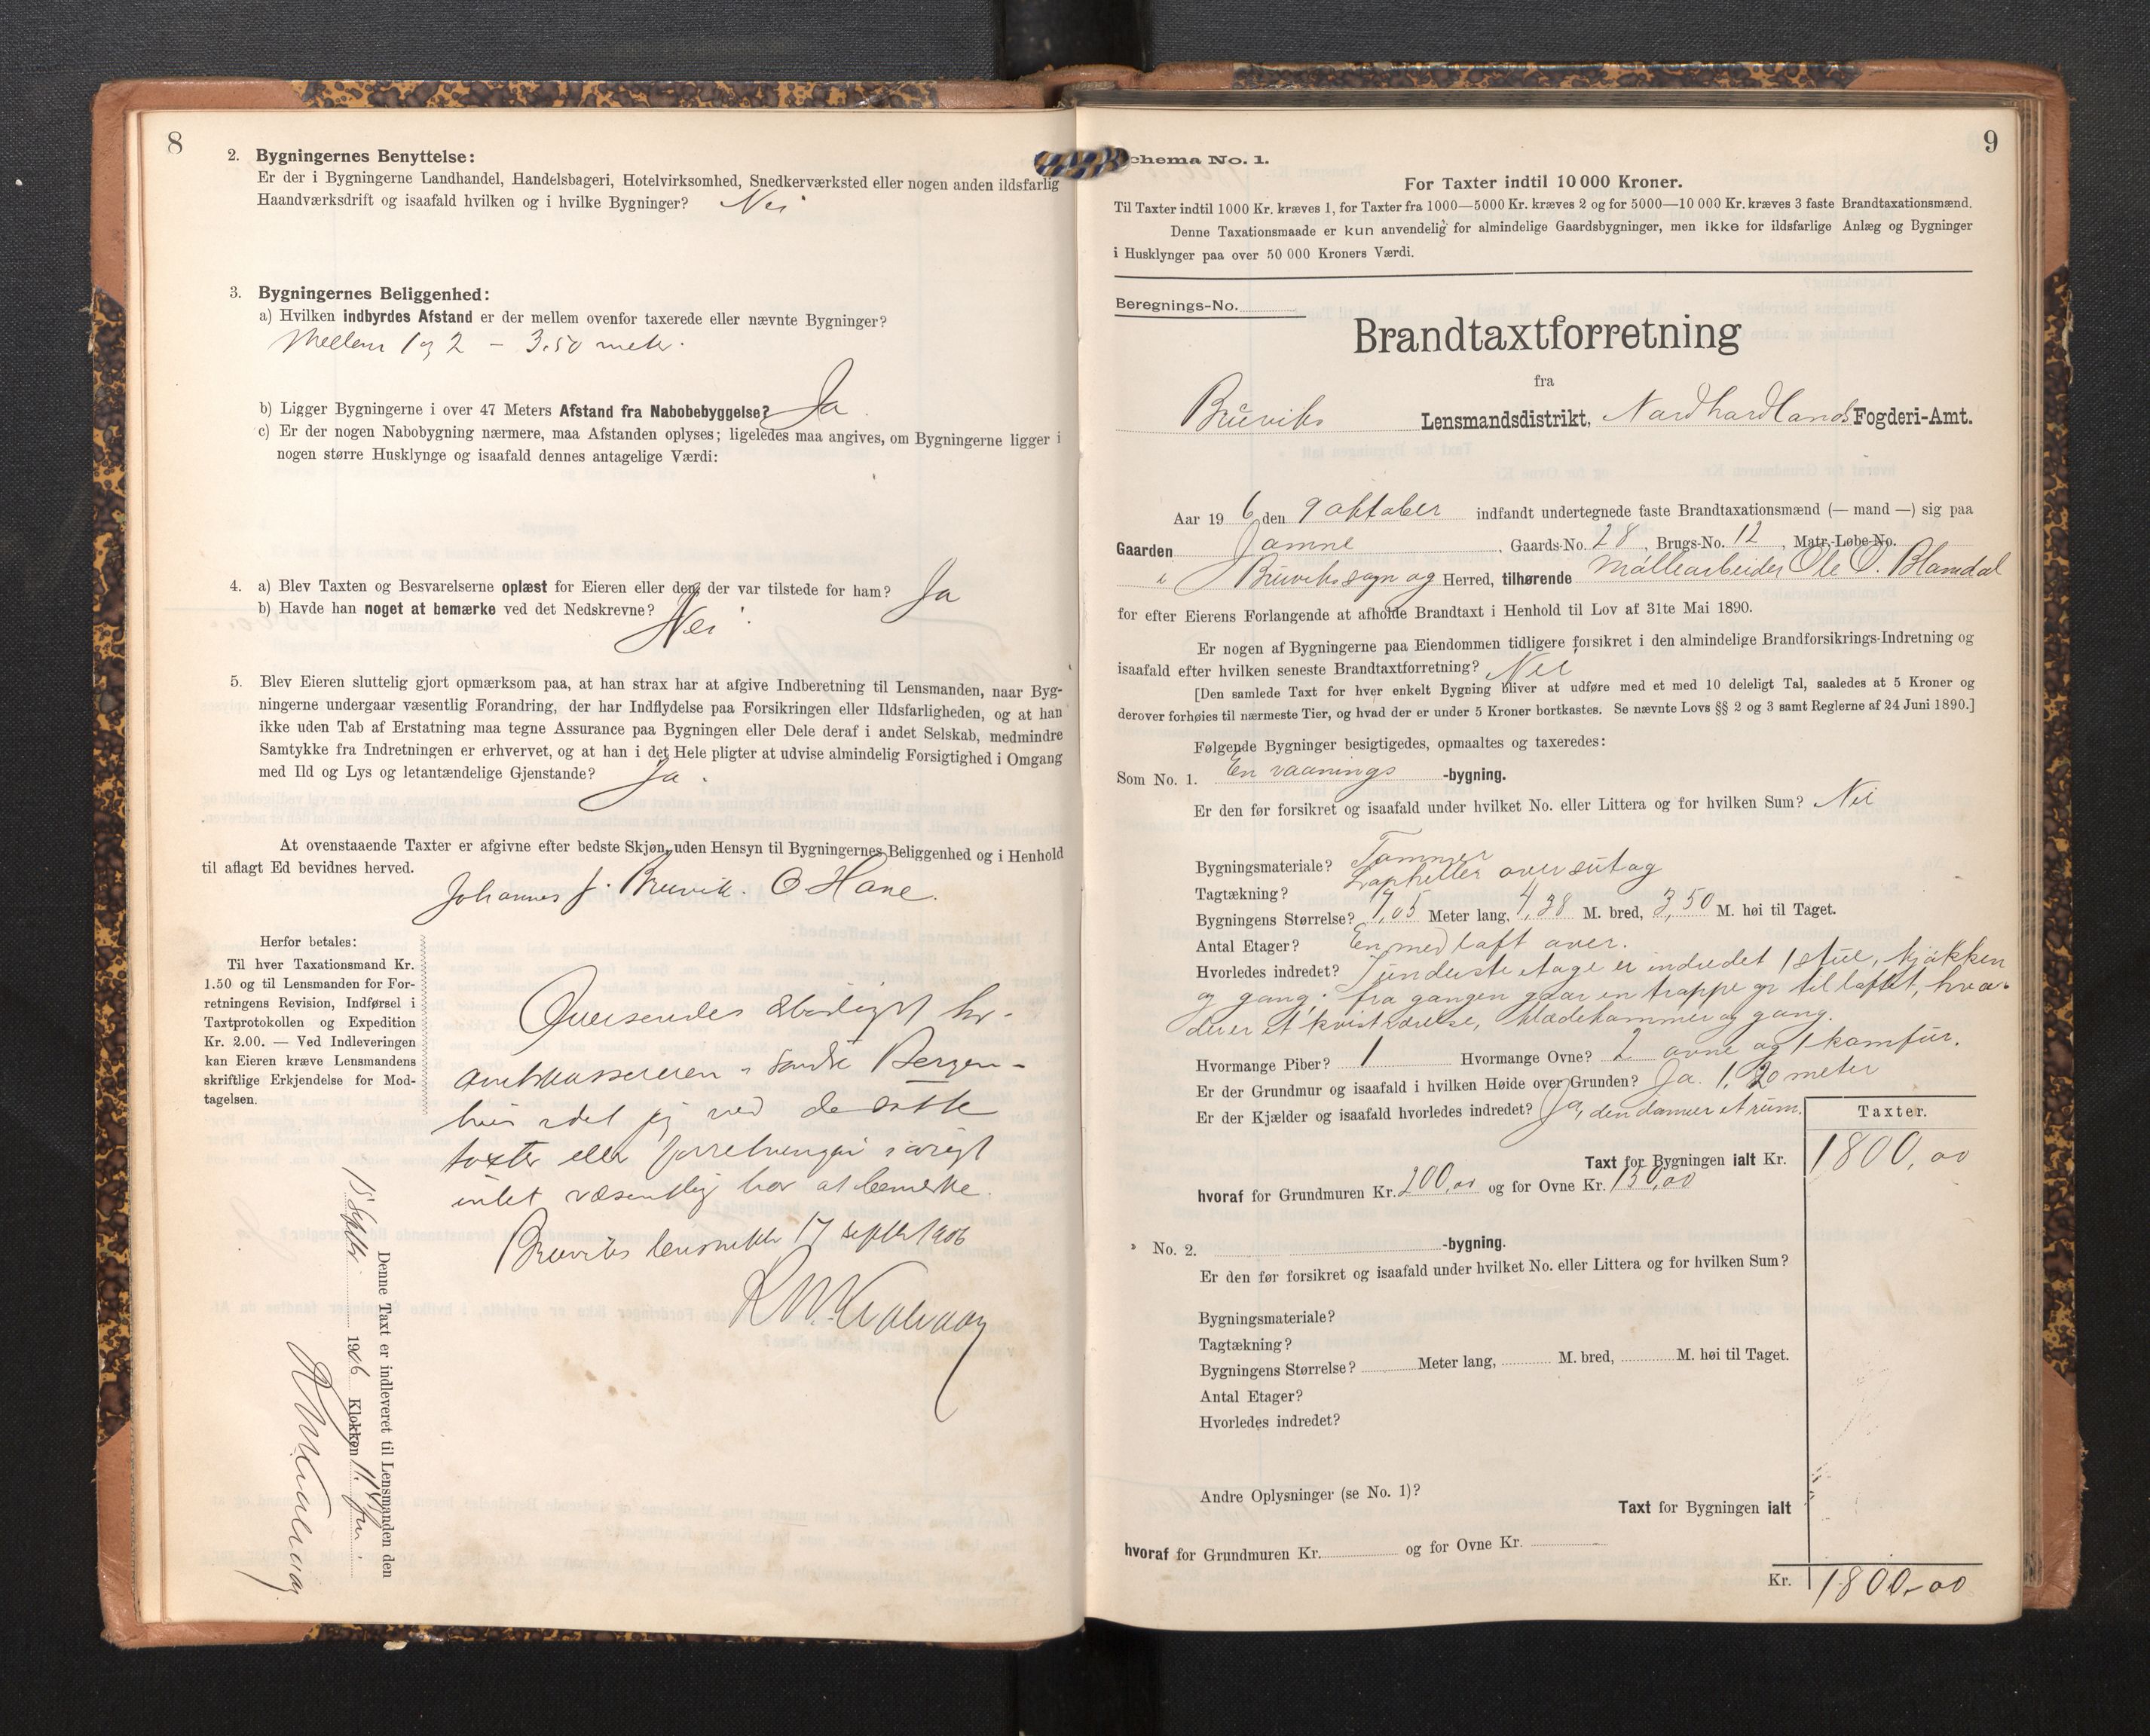 8
2. Bygningernes Benyttelse:
Er der i Bygningerne Landhandel, Handelsbageri, Hotelvirksomhed, Snedkerværksted eller nogen anden ildsfarlig
Haandværksdrift og isaafald hvilken og i hvilke Bygninger? Nei
3. Bygningernes Beliggenhed:
a) Hvilken indbyrdes Afstand er der mellem ovenfor taxerede eller nævnte Bygninger?
Mellem 1 og 2 - 3.50 meter.
b) Ligger Bygningerne i over 47 Meters Afstand fra Nabobebyggelse? Ja
c) Er der nogen Nabobygning nærmere, maa Afstanden oplyses; ligeledes maa angives, om Bygningerne ligger i
nogen større Husklynge og isaafald dennes antagelige Værdi:
4. a) Blev Taxten og Besvarelserne oplæst for Eieren eller den, der var tilstede for ham? Ja
b) Havde han noget at bemærke ved det Nedskrevne? Nei
5. Blev Eieren sluttelig gjort opmærksom paa, at han strax har at afgive Indberetning til Lensmanden, naar Byg-
ningerne undergaar væsentlig Forandring, der har Indflydelse paa Forsikringen eller Ildsfarligheden, og at han
ikke uden Tab af Erstatning maa tegne Assurance paa Bygningen eller Dele deraf i andet Selskab, medmindre
Samtykke fra Indretningen er erhvervet, og at han i det Hele pligter at udvise almindelig Forsigtighed i Omgang
med Ild og Lys og letantændelige Gjenstande? Ja.
At ovenstaaende Taxter er afgivne efter bedste Skjøn uden Hensyn til Bygningernes Beliggenhed og i Henhold
til aflagt Ed bevidnes herved.
Johannes J. Bruvik. O Hane.
Herfor betales:
Til hver Taxationsmand Kr.
1.50 og til Lensmanden for For-
retningens Revision, Indførsel i
Taxtprotokollen og Expedition
Kr. 2.00. — Ved Indleveringen
kan Eieren kræve Lensmandens
skriftlige Erkjendelse for Mod-
tagelsen.
Oversendes ærbødigst hr.
amtskassereren i Søndre Bergen-
hus idet jeg ved de satte
taxter eller forretningen i øvrigt
intet væsentlig har at bemerke.
Bruviks lensmktr 17 septbr 1906
Denne Taxt er indleveret til Lensmanden den
15 Septbr. 1906 Klokken 11
9
Schema No. 1.
For Taxter indtil 10 000 Kroner.
Til Taxter indtil 1000 Kr. kræves 1, for Taxter fra 1000—5000 Kr. kræves 2 og for 5000—10 000 Kr. kræves 3 faste Brandtaxationsmænd.
Denne Taxationsmaade er kun anvendelig for almindelige Gaardsbygninger, men ikke for ildsfarlige Anlæg og Bygninger
i Husklynger paa over 50 000 Kroners Værdi.
Beregnings-No.
Brandtaxtforretning
fra
Bruviks Lensmandsdistrikt, Nordhordlands Fogderi-Amt.
Aar 1906 den 9 oktober indfandt undertegnede faste Brandtaxationsmænd (— mand —) sig paa
Gaarden Jamne, Gaards-No. 28, Brugs-No. 12, Matr.-Løbe-No.
i Bruviks sogn og Herred, tilhørende Møllearbeider Ole O. Blomdal
for efter Eierens Forlangende at afholde Brandtaxt i Henhold til Lov af 31te Mai 1890.
Er nogen af Bygningerne paa Eiendommen tidligere forsikret i den almindelige Brandforsikrings-Indretning og
isaafald efter hvilken seneste Brandtaxtforretning? Nei
[Den samlede Taxt for hver enkelt Bygning bliver at udføre med et med 10 deleligt Tal, saaledes at 5 Kroner og
derover forhøies til nærmeste Tier, og hvad der er under 5 Kroner bortkastes. Se nævnte Lovs §§ 2 og 3 samt Reglerne af 24 Juni 1890.]
Følgende Bygninger besigtigedes, opmaaltes og taxeredes:
Som No. 1. En vaanings -bygning.
Er den før forsikret og isaafald under hvilket No. eller Littera og for hvilken Sum? Nei
Bygningsmateriale? Tømmer
Tagtækning? Tapheller over sutag
Bygningens Størrelse? 7,05 Meter lang, 4,38 M. bred, 3,50 M. høi til Taget.
Antal Etager? En med loft over.
Hvorledes indredet? I underste etage er indredet 1 stue, kjøkken
og gang. fra gangen gaar en trappe op til loftet, hvor
der er et kvistværelse, klædekammer og gang.
Hvormange Piber? 1 Hvormange Ovne? 2 ovne og 1 komfur.
Er der Grundmur og isaafald i hvilken Høide over Grunden? Ja. 1,20 meter
Er der Kjælder og isaafald hvorledes indredet? Ja, den danner et rum.
Taxter.
Taxt for Bygningen ialt Kr. 1800,00
hvoraf for Grundmuren Kr. 200,00 og for Ovne Kr. 130,00
No. 2. -bygning.
Er den før forsikret og isaafald under hvilket No. eller Littera og for hvilken Sum?
Bygningsmateriale?
Tagtækning?
Bygningens Størrelse? Meter lang, M. bred, M. høi til Taget.
Antal Etager?
Hvorledes indredet?
Andre Oplysninger (se No. 1)?
Taxt for Bygningen ialt
hvoraf for Grundmuren Kr. og for Ovne Kr.
Kr. 1800,00